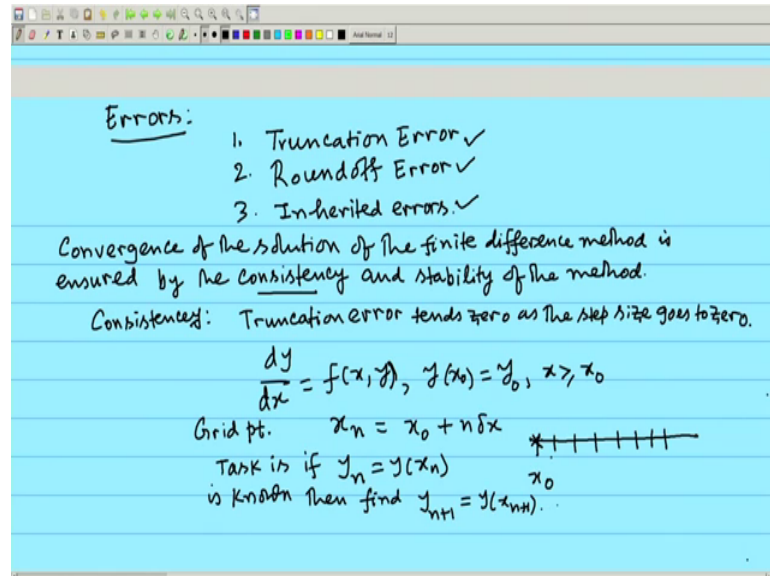 Arial Normal 12
Errors:
1. Truncation Error ✓
2. Roundoff Error ✓
3. Inherited errors. ✓
Convergence of the solution of the finite difference method is
ensured by the consistency and stability of the method.
Consistency: Truncation error tends zero as the step size goes to zero.
dy/dx = f(x, y), y(x₀) = y₀, x ≥ x₀
Grid pt. xₙ = x₀ + nδx
Task is if yₙ = y(xₙ)
x₀
is known then find yₙ₊₁ = y(xₙ₊₁).